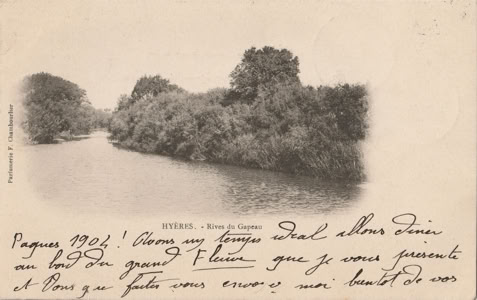 Parfumerie F. Chambourlier
HYÈRES. - Rives du Gapeau
Pâques 1904 ! Avons un temps ideal allons diner
au bord du grand Fleuve que je vous presente
et Vous que faites vous envoyez moi bientot de vos